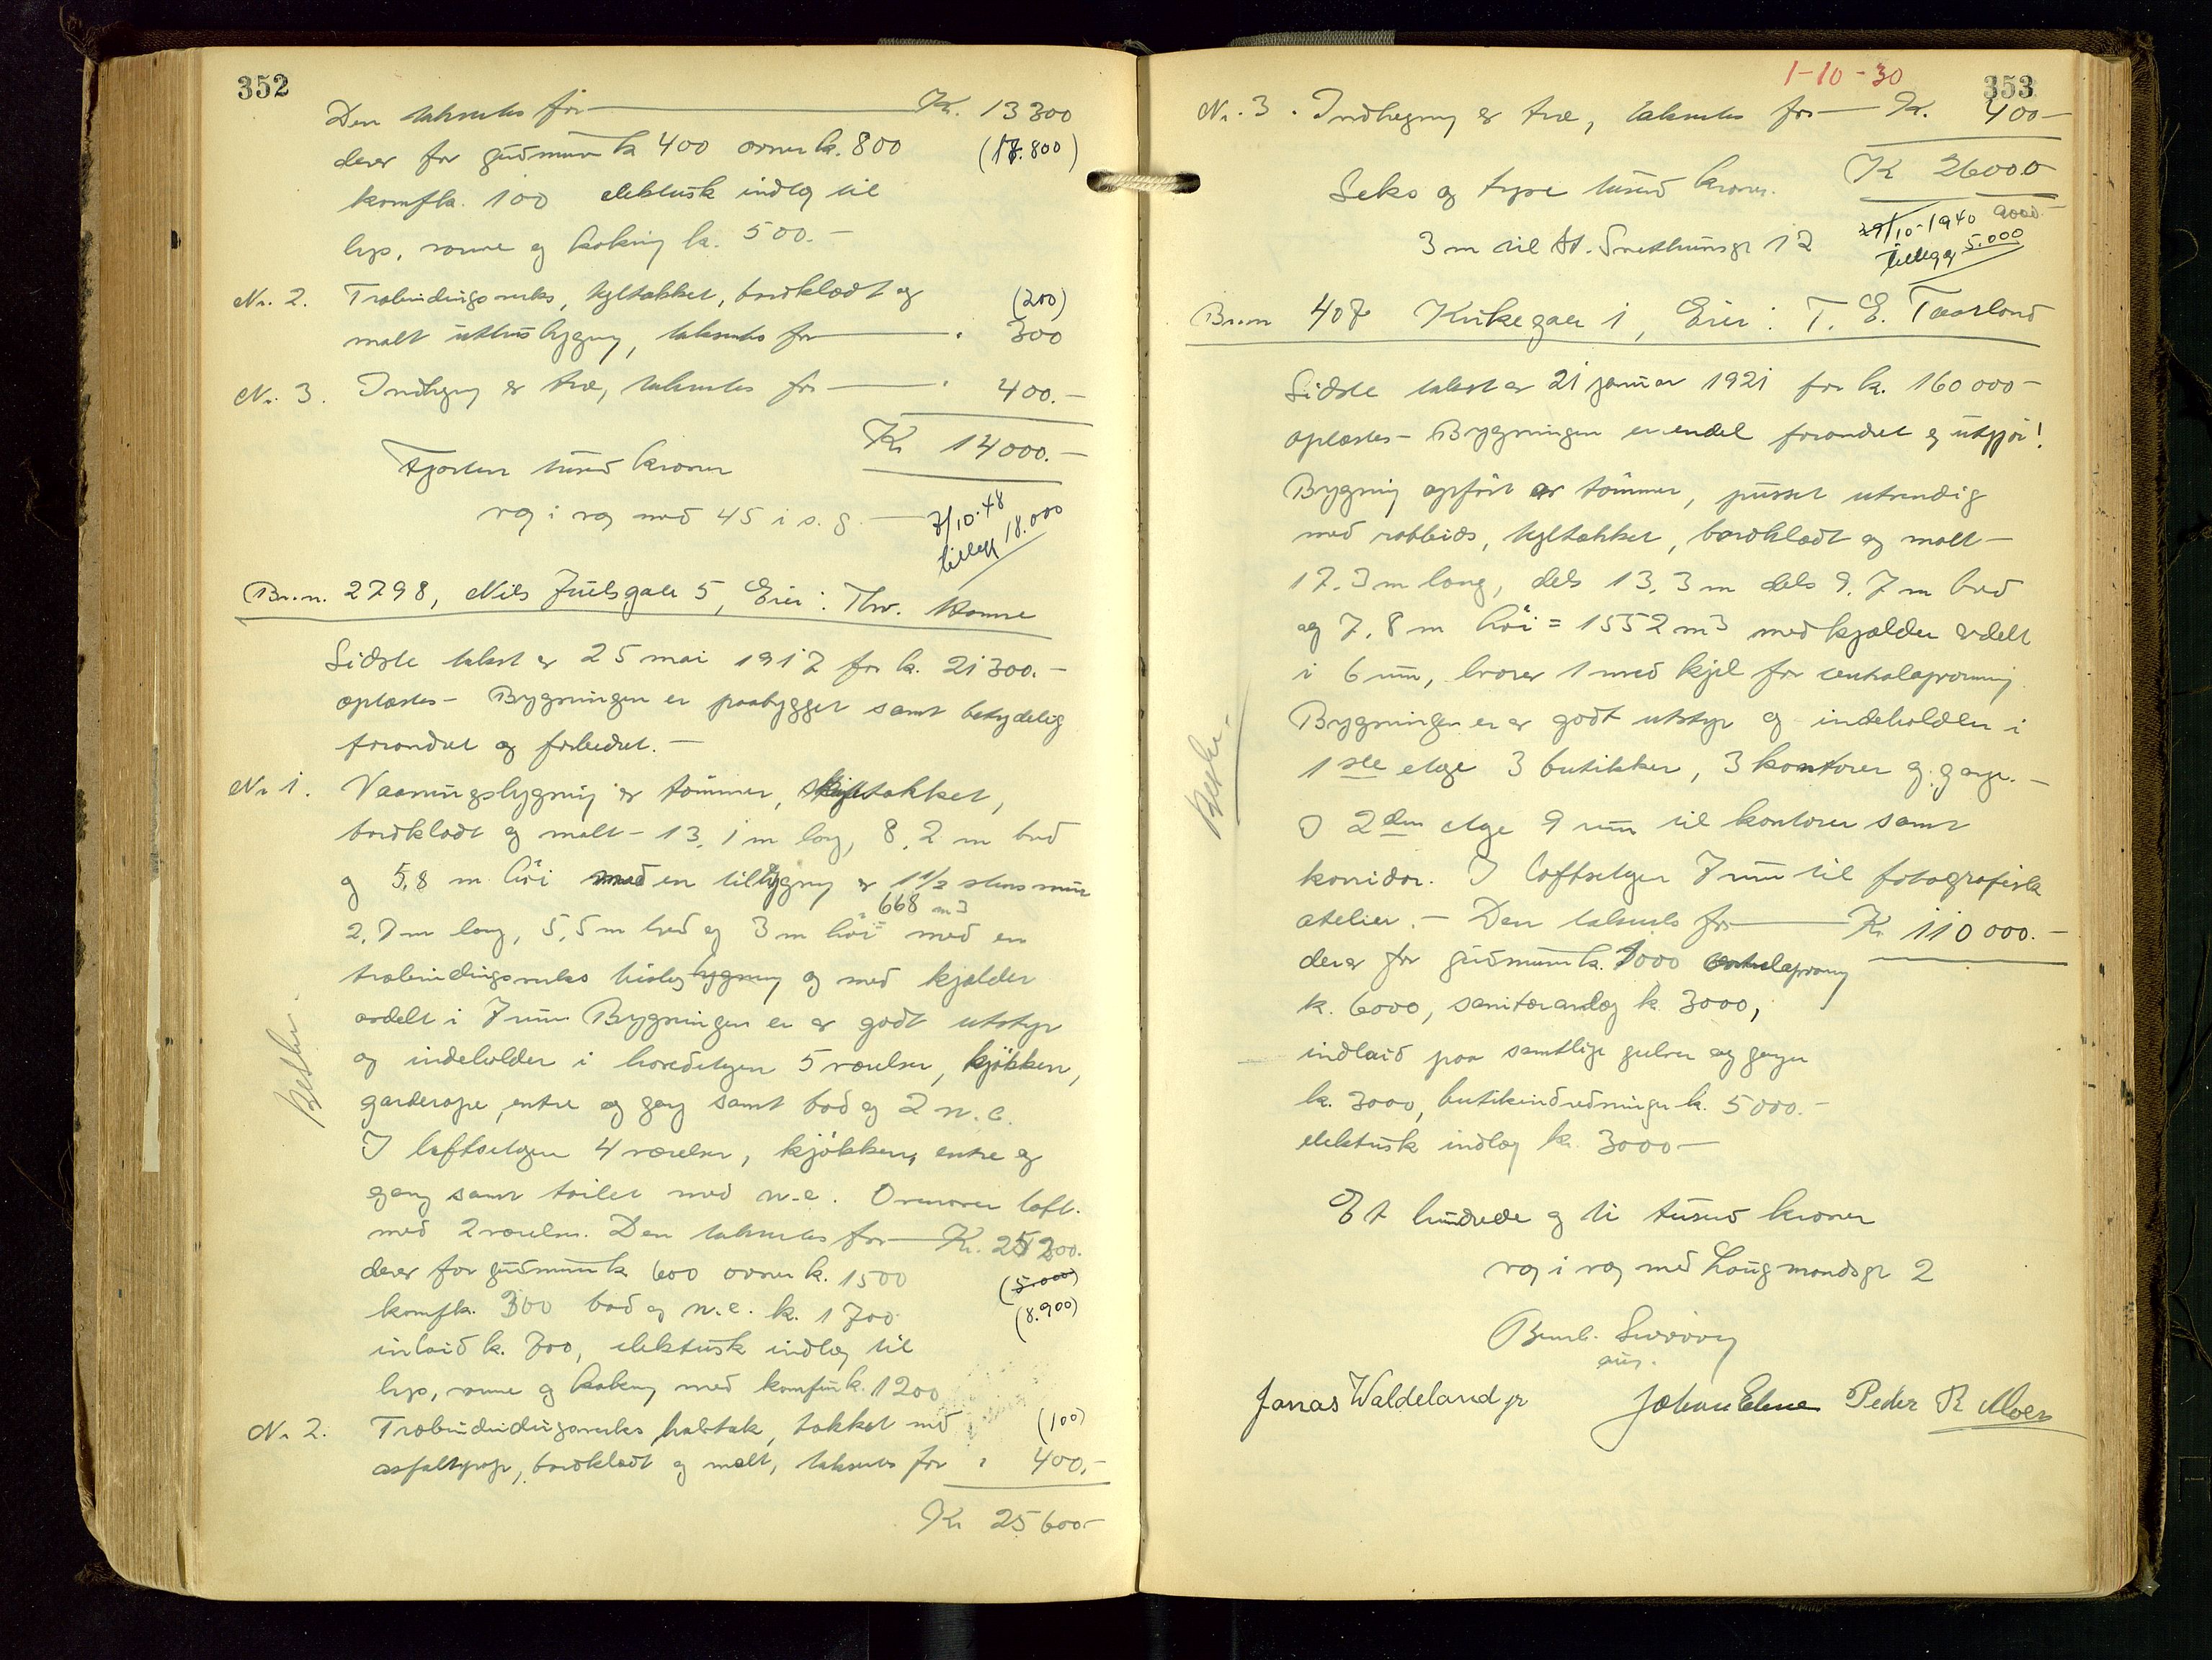 352
Den takseres for Kr. 13300
derav for grundmur kr 400 ovner kr. 800 (17.800)
komf kr. 100 elektrisk indlæg til
lys, varme og kokning kr. 500.-
Nr. 2. Træbindingsverks, tegltækket, bordklædt og (200)
malt uthusbygning, takseres for " 300
Nr. 3. Indhegning av træ, takseres for " 400.-
Kr 14000.-
Fjorten tusind kroner
væg i væg med 45 i s. g. 7/10-48
tillegg 18.000
Br.n. 2798, Nils Juelsgate 5, Eier: Thv.
Sidste takst av 25 mai 1917 for kr. 21300.-
oplæstes- Bygningen er paabygget samt betydelig
forandret og forbedret.-
Nr 1. Vaaningsbygning av tømmer, skifertækket,
bordklædt og malt- 13,1 m lang, 8,2 m bred
og 5,8 m høi med en tilbygning av 1 1/2 stens mur
668 m3
2,7 m lang, 5,5 m bred og 3 m høi = med en
træbindingsverks bislagbygning og med kjælder
avdelt i 7 rum Bygningen er av godt utstyr
og indeholder i hovedetagen 5 værelser, kjøkken,
garderope, entre og gang samt bad og 2 w.c.
I loftsetagen 4 værelser, kjøkken, entre og
gang samt toilet med w.c. Ovenover loft
med 2 værelser. Den takseres for Kr. 25200.
derav for grundmur kr 600 ovner kr. 1500 (5.000)
komf kr. 300 bad og w.c. kr. 1700 (8.900)
inlaid kr. 700, elektrisk indlæg til
lys, varme og kokning med komfur kr. 1200
Nr 2. Træbindingsverks halvtak, tækket med (100)
asfaltpap, bordklædt og malt, takseres for " 400,-
Kr 25600-
1-10-30
353
Nr. 3. Indhegning av træ, takseres for Kr. 400-
Kr 26000
Seks og tyve tusind kroner.
29/10-1940 9000.-
3 m til St. Svithunsgt 12 tillegg 5.000
Br.nr 407 Kirkegate 1, Eier: T. E. Taarland
Sidste takst av 21 januar 1921 for kr. 160000-
oplæstes- Bygningen er endel forandret og utgjør!
Bygning opført av tømmer, pusset utvendig
med rabbids, tegltækket, bordklædt og malt-
17.3 m lang, dels 13,3 m dels 9.7 m bred
og 7,8 m høi = 1552 m3 med kjælder avdelt
i 6 rum, hvorav 1 med kjel for centralopvarmning
Bygningen er av godt utstyr og indeholder i
1ste etage 3 butikker, 3 kontorer og gange.-
I 2den etage 9 rum til kontorer samt
korridor. I loftsetagen 7 rum til fotografisk
atelier.- Den takseres for Kr 110000.-
derav for grundmur kr. 7000 centralopvarmng
kr. 6000, sanitæranlæg kr 3000,
indlaid paa samtlige gulver og ganger
kr. 3000, butikindredninger kr. 5000.-
elektrisk indlæg kr. 3000-
Et hundrede og ti tusind kroner
væg i væg med Laugmandsgt 2
Jonas Waldeland jr Johan Elme Peder R Moen